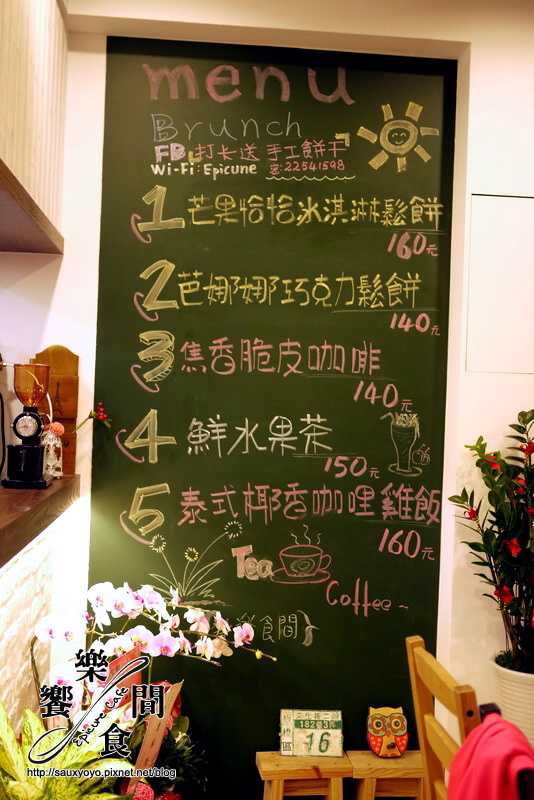 menu
Brunch
FB 打卡送 手工餅干
Wi-Fi: Epicune 密:22541598
1 芒果恰恰冰淇淋鬆餅
160元
2 芭娜娜巧克力鬆餅
140元
3 焦香脆皮咖啡
140元
4 鮮水果茶
150元
5 泰式椰香咖哩雞飯
160元
Tea
Coffee~
食間
文化路二段
182巷3弄
板橋區
16
樂
饗 間
食
Epicure Café
http://sauxyoyo.pixnet.net/blog